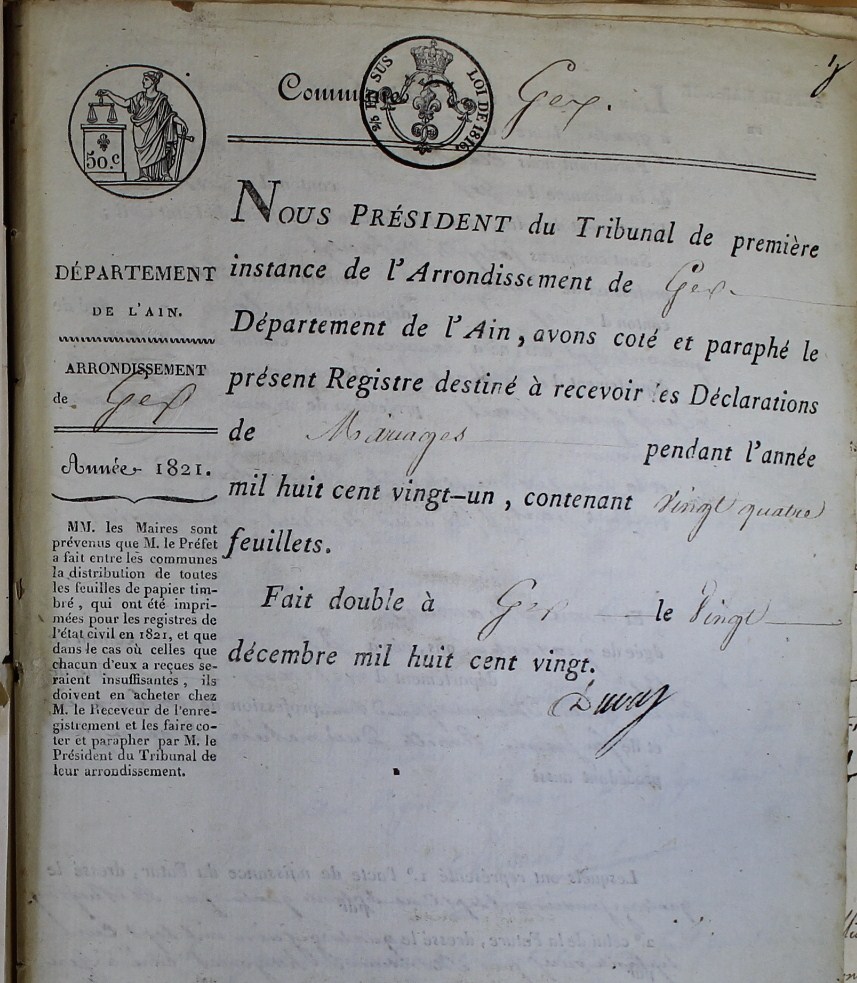 50.c
Commune
EN SUS
LOI DE 1816.
Gex.
DÉPARTEMENT
DE L'AIN.
ARRONDISSEMENT
de Gex
Année 1821.
MM. les Maires sont
prévenus que M. le Préfet
a fait entre les communes
la distribution de toutes
les feuilles de papier tim-
bré, qui ont été impri-
mées pour les registres de
l'état civil en 1821, et que
dans le cas où celles que
chacun d'eux a reçues se-
raient insuffisantes, ils
doivent en acheter chez
M. le Receveur de l'enre-
gistrement et les faire co-
ter et parapher par M. le
Président du Tribunal de
leur arrondissement.
NOUS PRÉSIDENT du Tribunal de première
instance de l'Arrondissement de Gex
Département de l'Ain, avons coté et paraphé le
présent Registre destiné à recevoir les Déclarations
de Mariages pendant l'année
mil huit cent vingt-un, contenant vingt quatre
feuillets.
Fait double à Gex le vingt
décembre mil huit cent vingt.